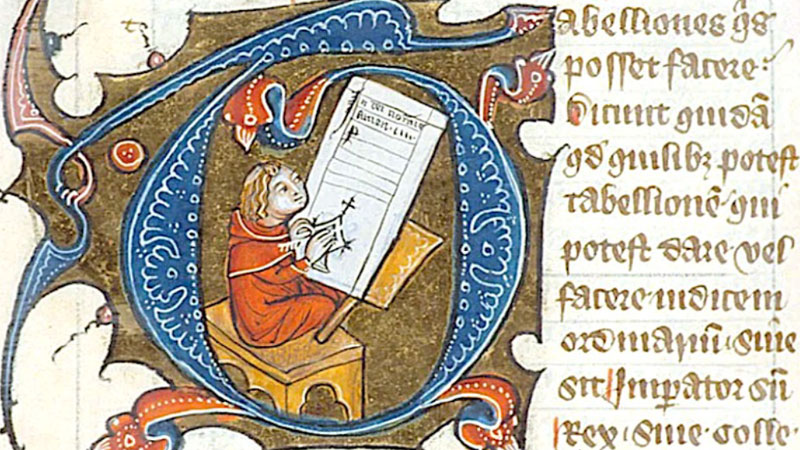 N DEI
AMEN
Tabelliones q̄s
posset facere:
Dicunt quidā
qđ quilibꝫ potest
tabellionē qui
potest dare vel
facere iudicem
ordinariū. siue
sit Imꝑator siū
Rex. siue colle.